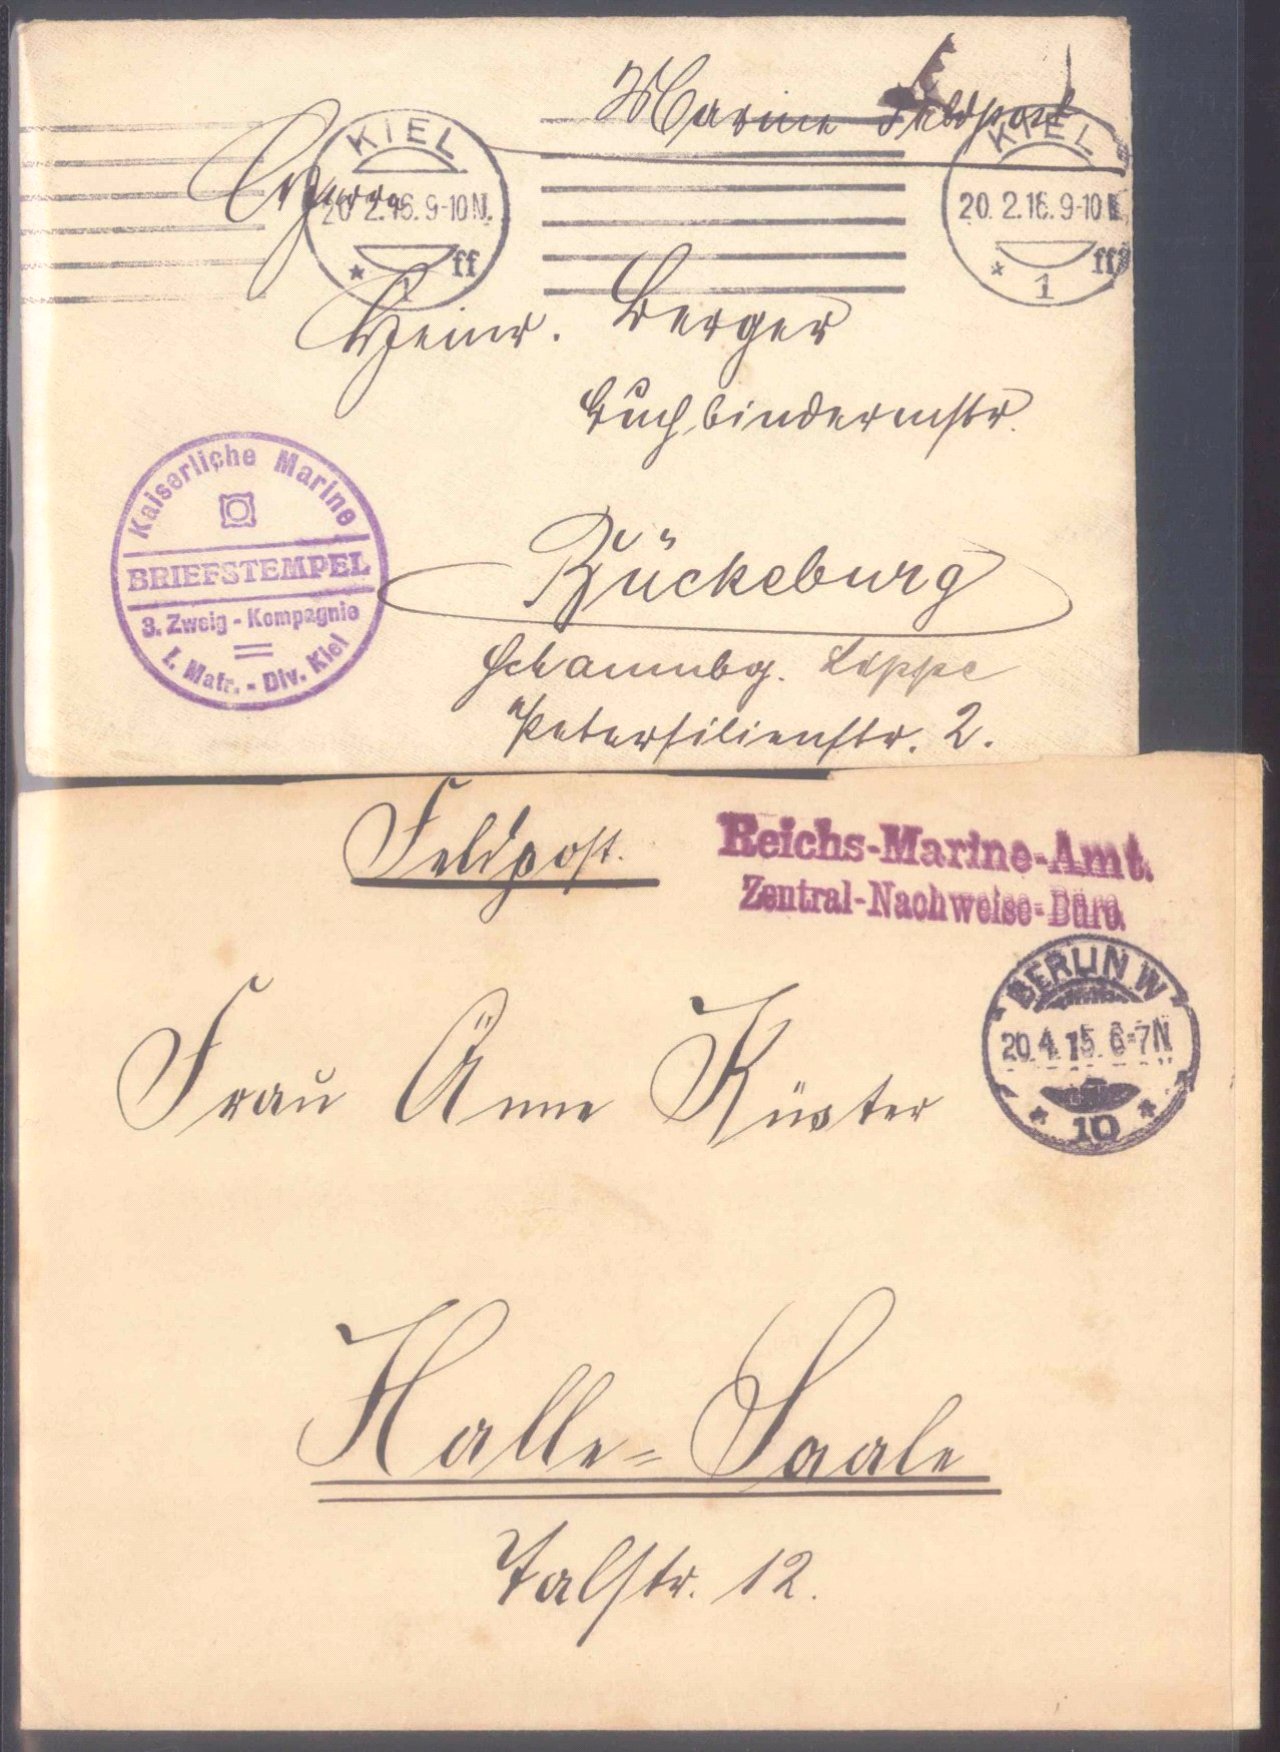 Marine Feldpost
KIEL
20.2.16.9-10N.
* 1 ff
KIEL
20.2.16.9-10N.
* 1 ff
Herrn
Heinr. Berger
Buchbindermstr.
Bückeburg
Schaumbg. Lippe
Petersilienstr. 2.
Kaiserliche Marine
BRIEFSTEMPEL
3. Zweig-Kompagnie
I. Matr.-Div. Kiel
Feldpost.
Reichs-Marine-Amt.
Zentral-Nachweise-Büro.
BERLIN W
20.4.15. 6-7N
* 10 *
Frau Änne Küster
Halle-Saale
Talstr. 12.